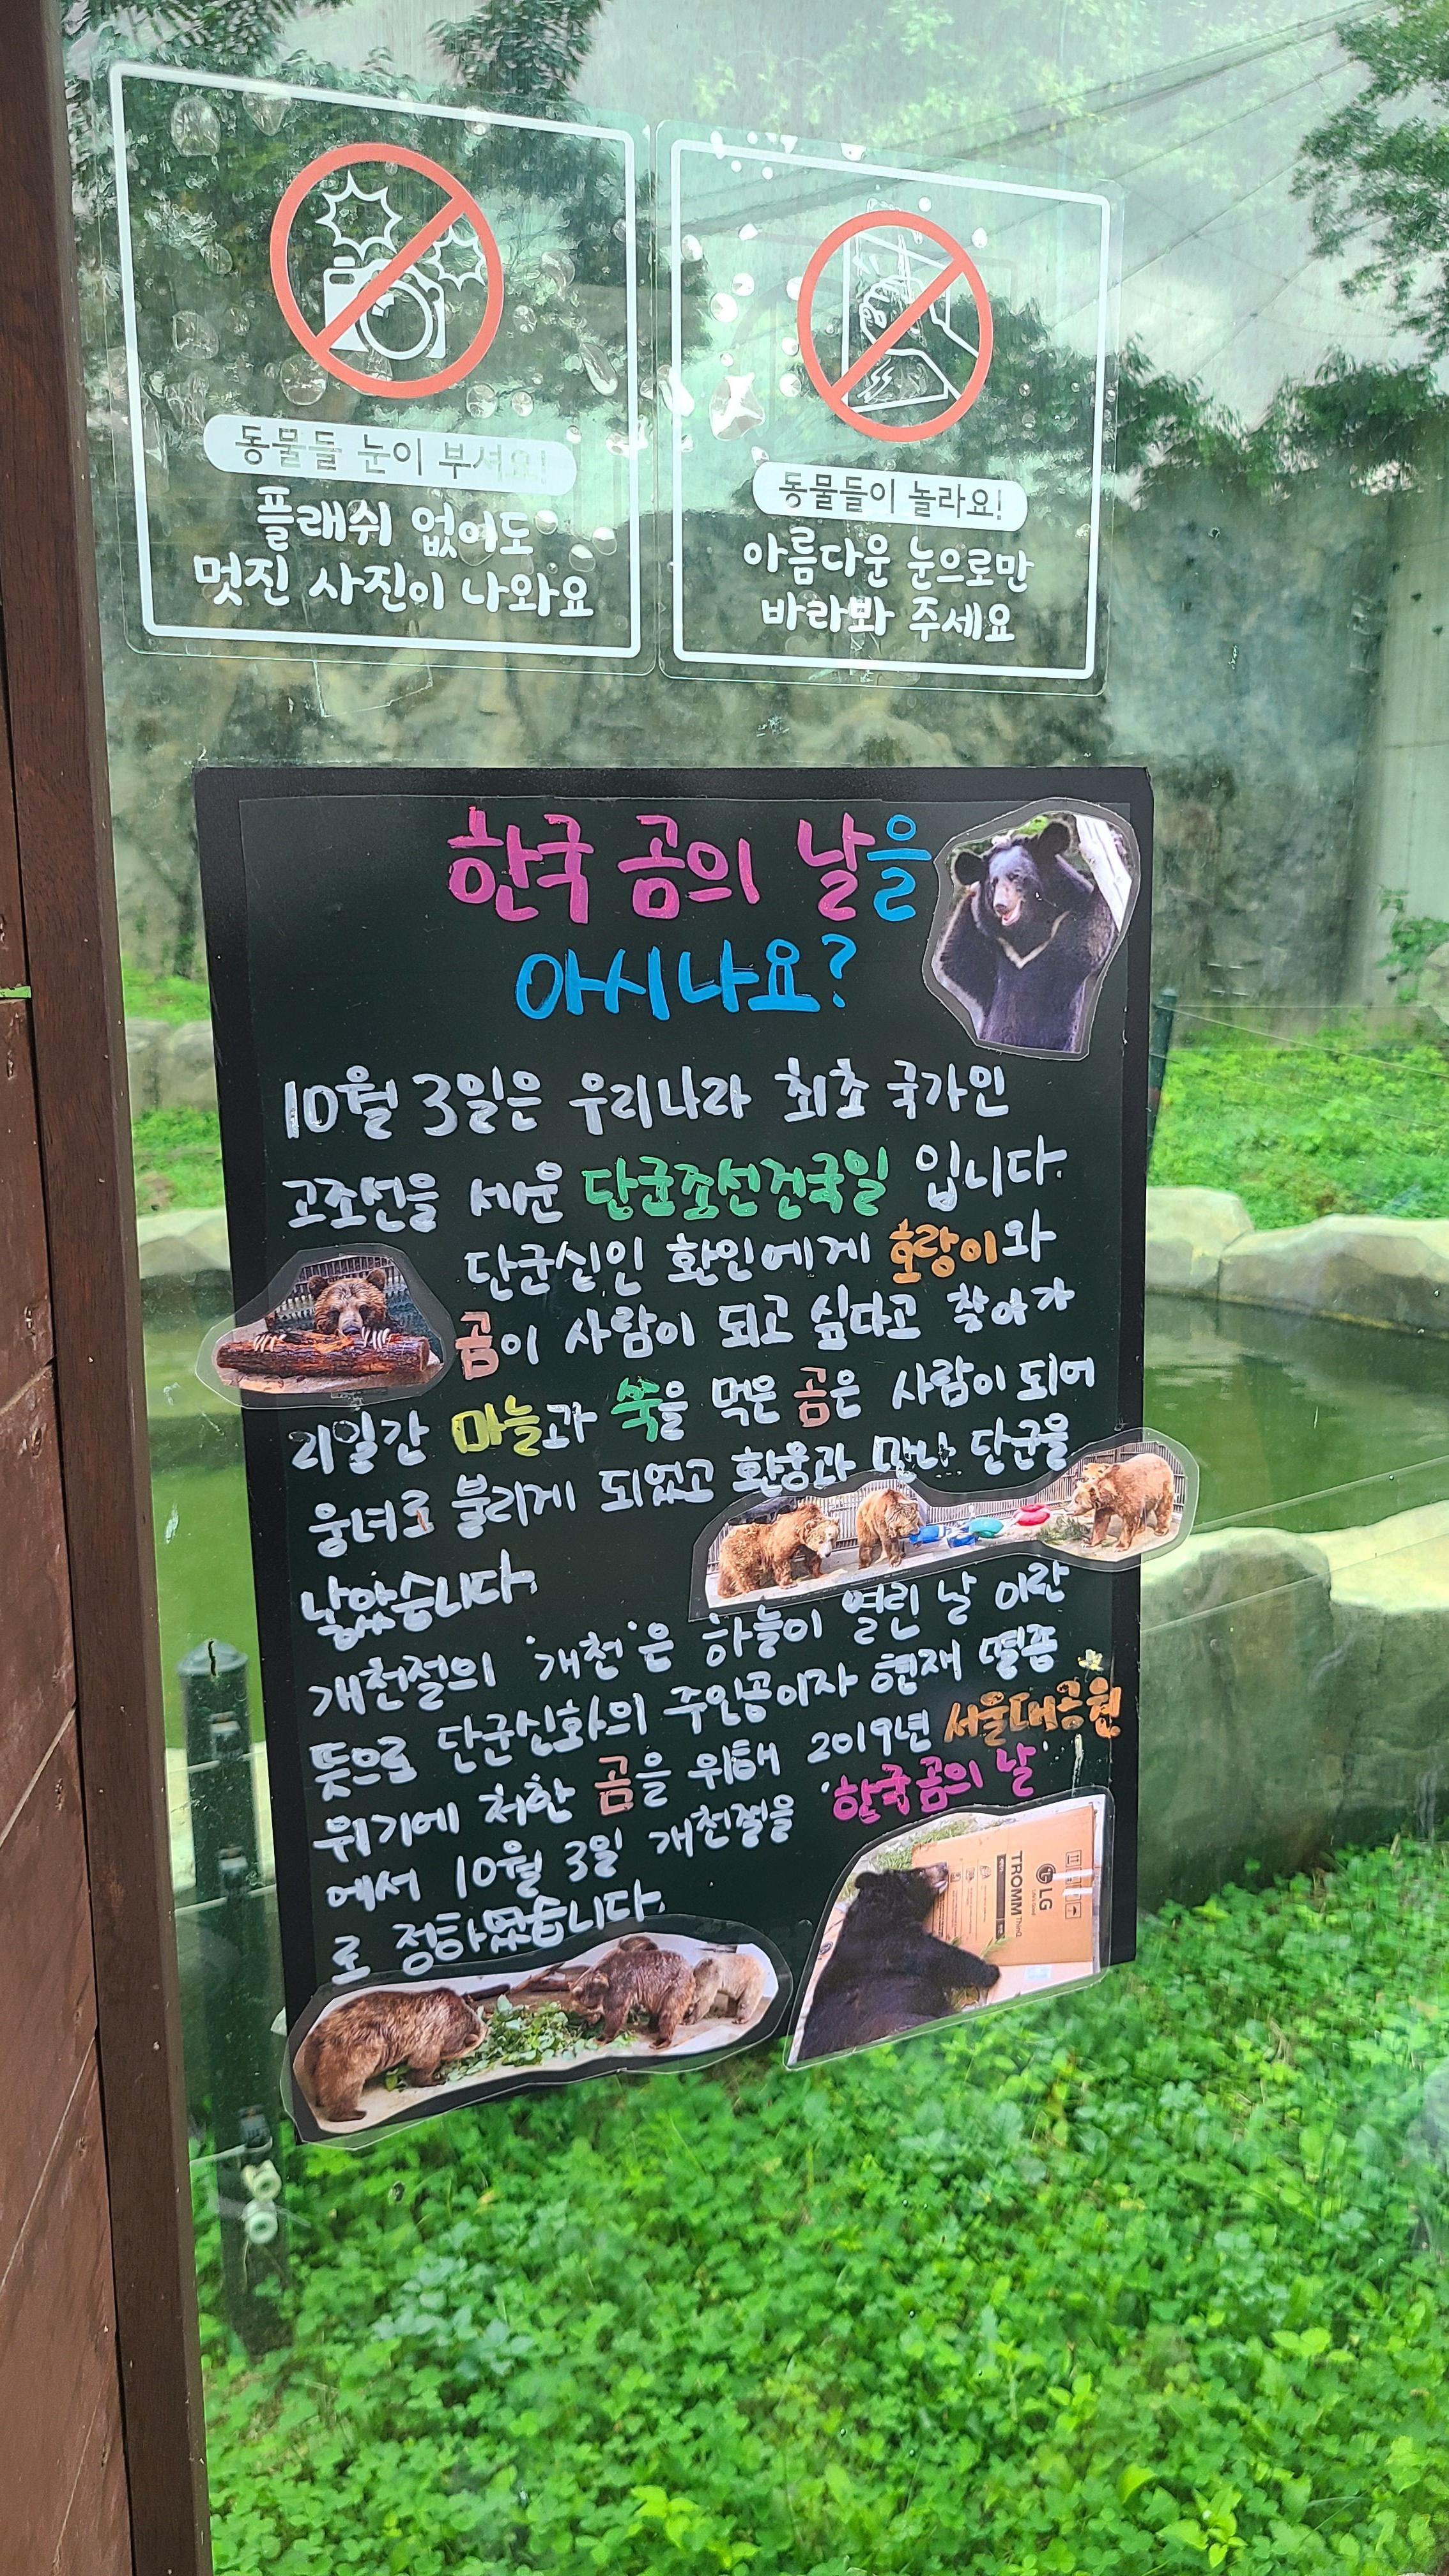 동물들 눈이 부셔요!
플래쉬 없이도
멋진 사진이 나와요
동물들이 놀라요!
아름다운 눈으로만
바라봐 주세요
한국 곰의 날을
아시나요?
10월 3일은 우리나라 최초 국가인
고조선을 세운 단군조선건국일 입니다.
단군신인 환인에게 호랑이와
곰이 사람이 되고 싶다고 찾아가
21일간 마늘과 쑥을 먹은 곰은 사람이 되어
웅녀로 불리게 되었고 환웅과 만나 단군을
낳았습니다.
개천절의 '개천'은 하늘이 열린 날 이란
뜻으로 단군신화의 주인공이자 현재 멸종
위기에 처한 곰을 위해 2019년 서울대공원
에서 10월 3일 개천절을 '한국곰의 날'
로 정하였습니다.
LG
TROMM